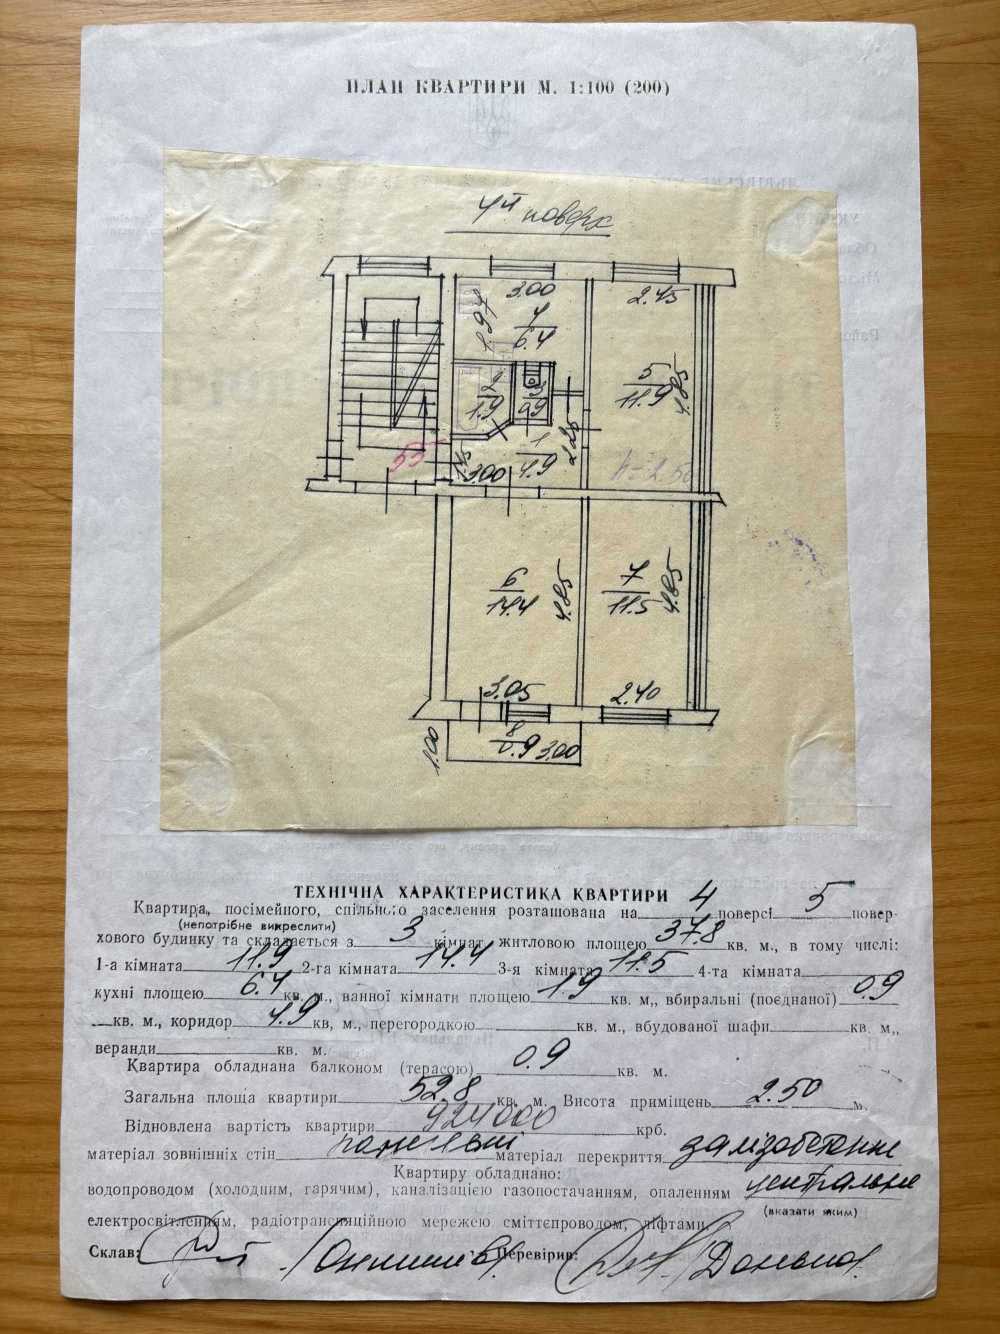 ПЛАН КВАРТИРИ М. 1:100 (200)
4й поверх
3.00
2.45
1.97
4
6.4
5
11.9
4.85
2
1.9
3
0.9
2.25
55
1.45
3.00
1
4.9
h=2.50
6
14.4
4.85
7
11.5
4.85
3.05
2.40
1.00
8
0.9
3.00
ТЕХНІЧНА ХАРАКТЕРИСТИКА КВАРТИРИ
Квартира, посімейного, спільного заселення розташована на 4 поверсі 5 повер-
(непотрібне викреслити)
хового будинку та складається з 3 кімнат, житловою площею 37.8 кв. м., в тому числі:
1-а кімната 11.9 2-га кімната 14.4 3-я кімната 11.5 4-та кімната
кухні площею 6.4 кв. м., ванної кімнати площею 1.9 кв. м,, вбиральні (поєднаної) 0.9
кв. м., коридор 4.9 кв, м., перегородкою кв. м., вбудованої шафи кв. м,,
веранди кв. м.
Квартира обладнана балконом (терасою) 0.9 кв. м.
Загальна площа квартири 52.8 кв. м. Висота приміщень 2.50 м.
Відновлена вартість квартири 924000 крб.
матеріал зовнішніх стін панельні матеріал перекриття залізобетонне
Квартиру обладнано:
водопроводом (холодним, гарячим), каналізацією газопостачанням, опаленням центральне
(вказати яким)
електросвітленням, радіотрансляційною мережею сміттєпроводом, ліфтами.
Склав: Перевірив: